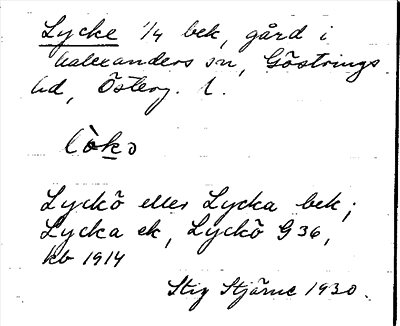 Lycke 1/4 bek, gård i
Kalexanders sn, Göstrings
hd, Österg. l.
Lyckö eller Lycka bek;
Lycka ek, Lyckö G 36,
kb 1914
Stig Stjärne 1930.